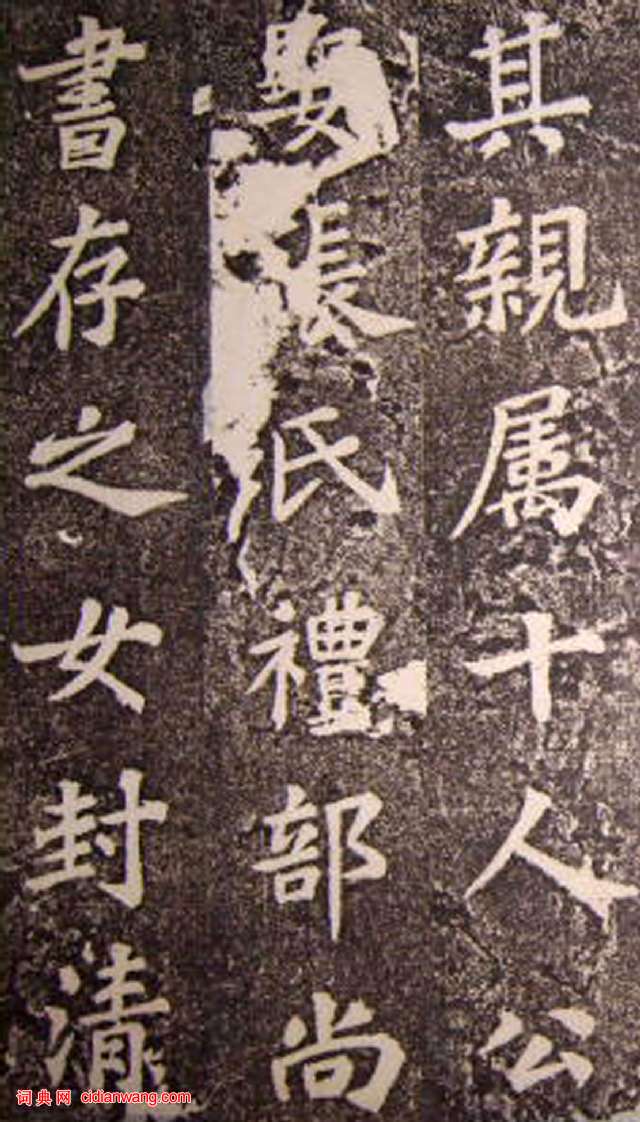 其親属十人公
娶張氏禮部尚
書存之女封清
词典网 cidianwang.com